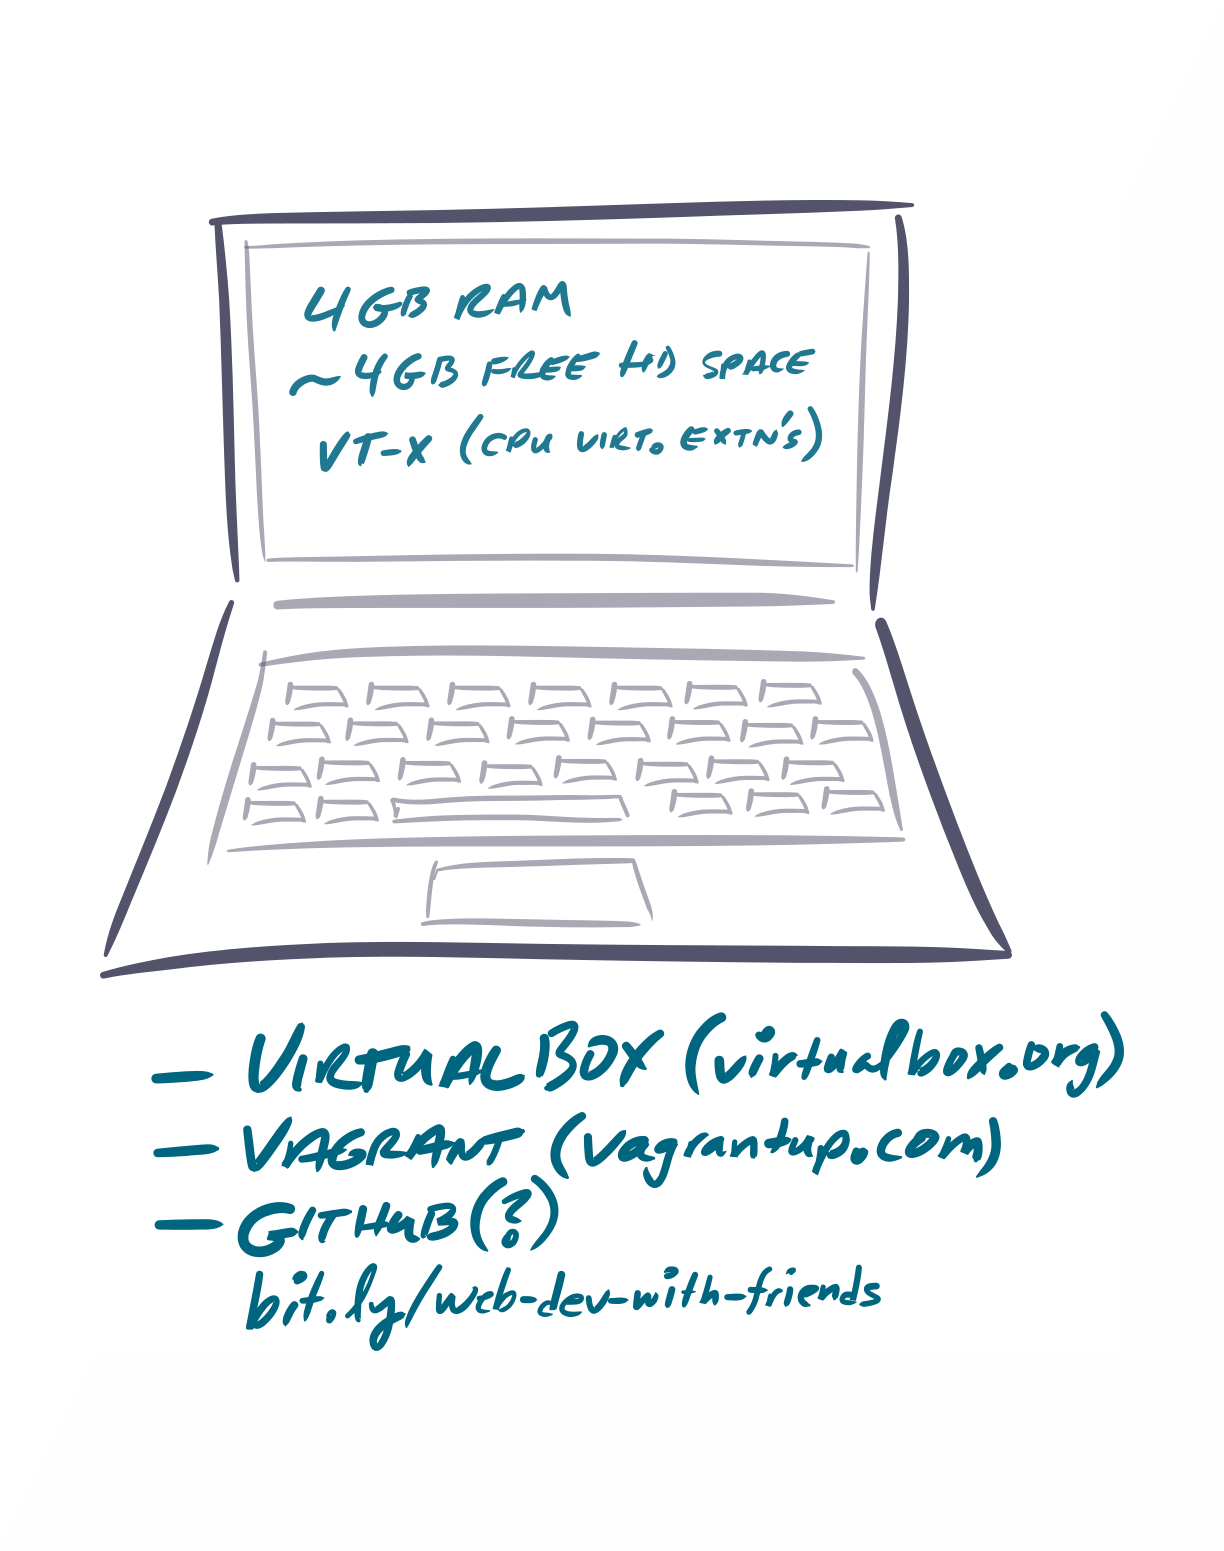 4GB RAM
~4GB FREE HD SPACE
VT-X (CPU VIRT. EXTN'S)
- VIRTUALBOX (virtualbox.org)
- VAGRANT (vagrantup.com)
- GITHUB (?)
bit.ly/web-dev-with-friends